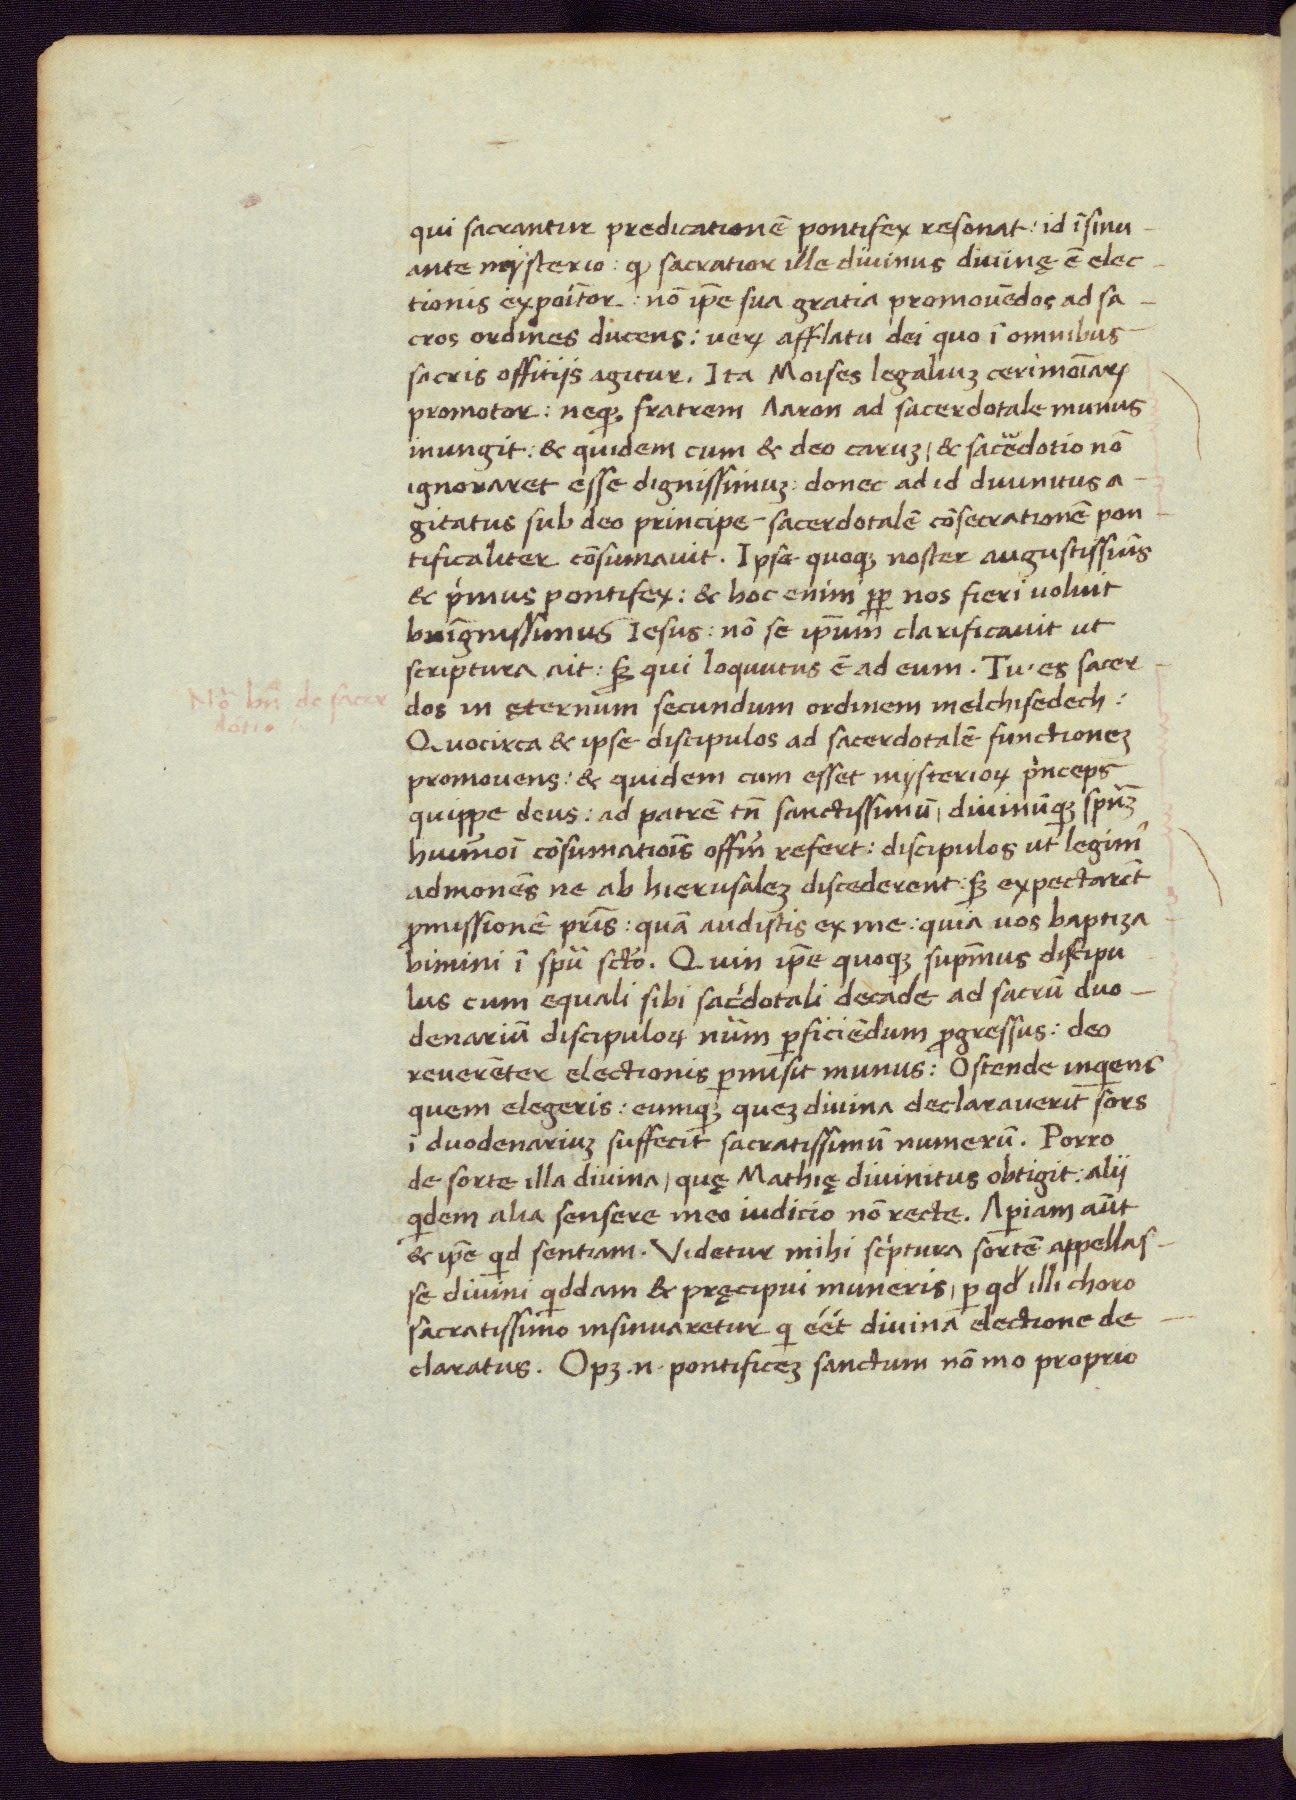 qui sacrantur predicationē pontifex resonat: id īsinu-
ante mysterio: ꝙ sacratior ille divinus divinę ē elec-
tionis expoītor: nō ip̄e sua gratia promovēdos ad sa-
cros ordines ducens: verꝝ afflatu dei quo ī omnibus
sacris offitijs agitur. Ita Moises legaliuꝫ cerimoīarꝝ
promotor: neqꝫ fratrem Aaron ad sacerdotale munus
inungit: & quidem cum & deo caruꝫ, & sacerdotio nō
ignoraret esse dignissimuꝫ: donec ad id divinitus a-
gitatus sub deo principe sacerdotalē cōsecrationē pon-
tificaliter cōsumavit. Ipse quoqꝫ noster augustissim̄s
& p̓mus pontifex: & hoc enim ꝓp̄ nos fieri voluit
bnīgnissimus Iesus: nō se ip̄um clarificavit ut
scriptura ait: sꝫ qui loquutus ē ad eum. Tu es sacer-
dos in ęternum secundum ordinem melchisedech:
Nō bn̄ de sacer
dotio
Quocirca & ipse discipulos ad sacerdotalē functioneꝫ
promovens: & quidem cum esset mysterioꝝ p̓nceps
quippe deus: ad patrē tn̄ sanctissimū, divinūqꝫ spūꝫ
huiūmōi cōsumatiōis offm̄ refert: discipulos ut legim᷒
admonēs ne ab hierusaleꝫ discederent: sꝫ expectarēt
ꝓmissionē pr̄is: quā audistis ex me: quia vos baptiza
bimini ī spū sctō. Quin ip̄e quoqꝫ supm̄us discipu
lus cum equali sibi sac̓dotali decade ad sacrū duo-
denariū discipuloꝝ nūm ꝑficiēdum ꝓgressus: deo
reverēter electionis ꝑmisit munus: Ostende inquens
quem elegeris: eumqꝫ queꝫ divina declaraverit sors
ī duodenariuꝫ suffecit sacratissimū numerū. Porro
de sorte illa divina, quę Mathię divinitus obtigit: alij
qdem alia sensere meo iudicio nō recte. Aꝑiam aūt
& ip̄e qd sentiam. Videtur mihi sc̓ptura sortē appellas-
se divini qddam & pręcipui muneris, ꝑ qd illi choro
sacratissimo insinuaretur q ēet divina electione de-
claratus. Opꝫ .n. pontificeꝫ sanctum nō mo proprio